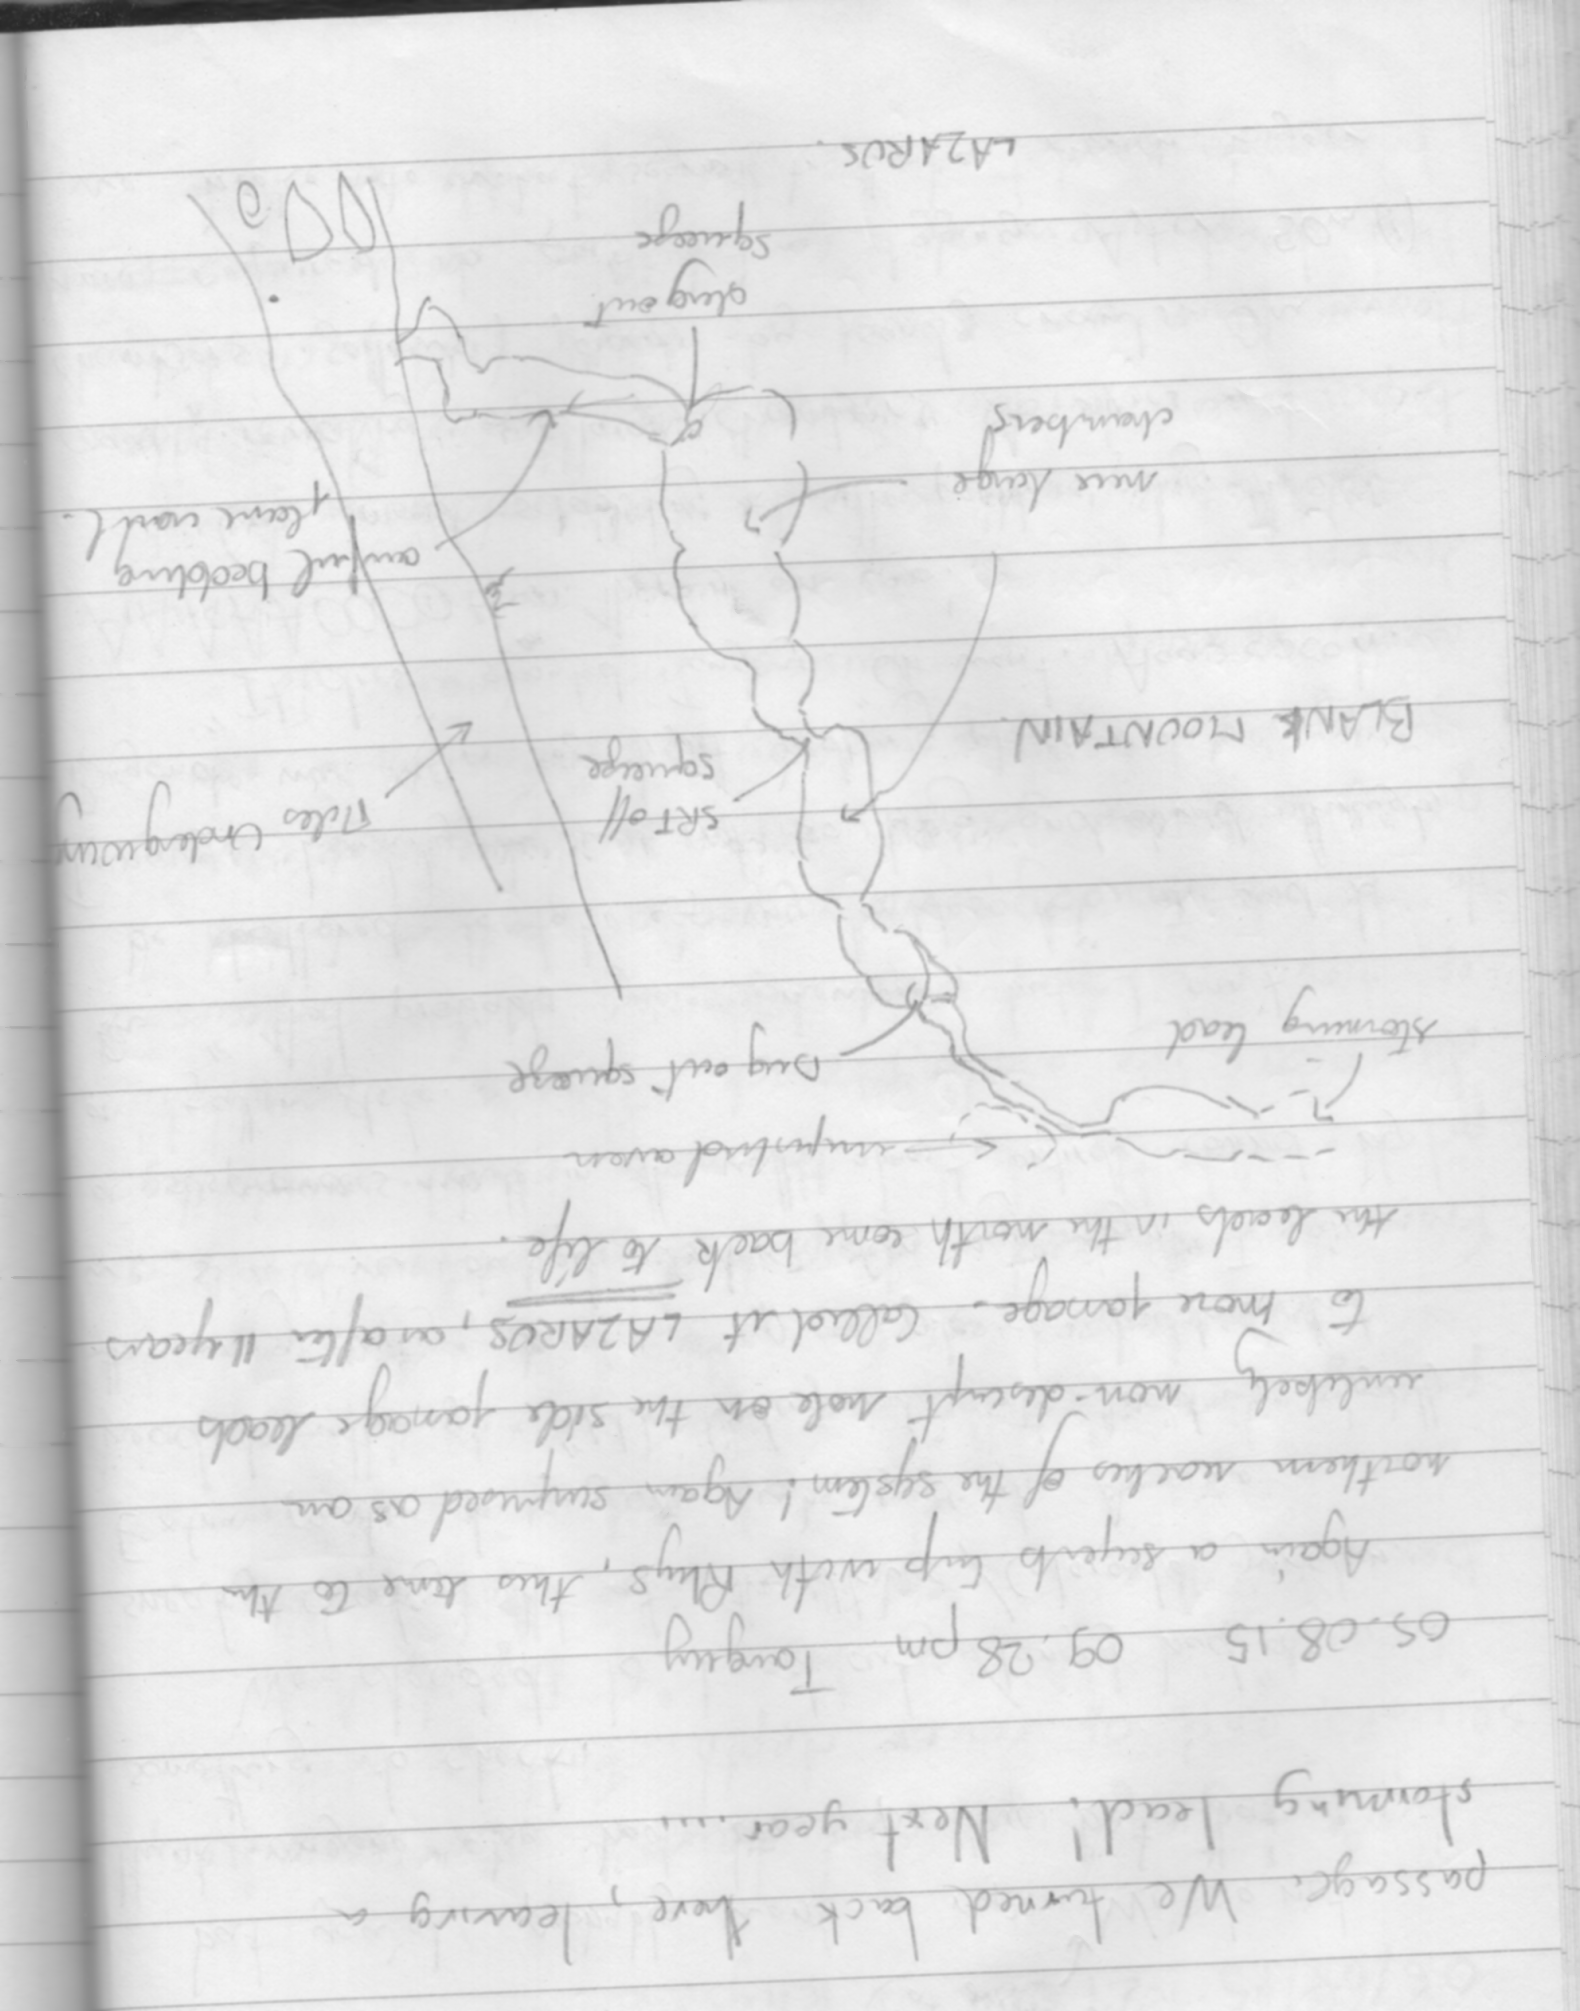 passage. We turned back there, leaving a
storming lead! Next year.....
05.08.15 09.28pm Tanguy
Again, a superb trip with Rhys, this time to the
northern reaches of the system! Again surprised as an
unlikely non-descript hole on the side passage leads
to more passage. Called it LAZARUS, as after 11 years
the leads in the north come back to life.
unpushed aven
storming lead
Dug out squeeze
Tides Undergwing
SRT off
squeeze
BLANK MOUNTAIN
awful bedding
plane crawl.
nice large
chambers
dug out
squeeze
LAZARUS.